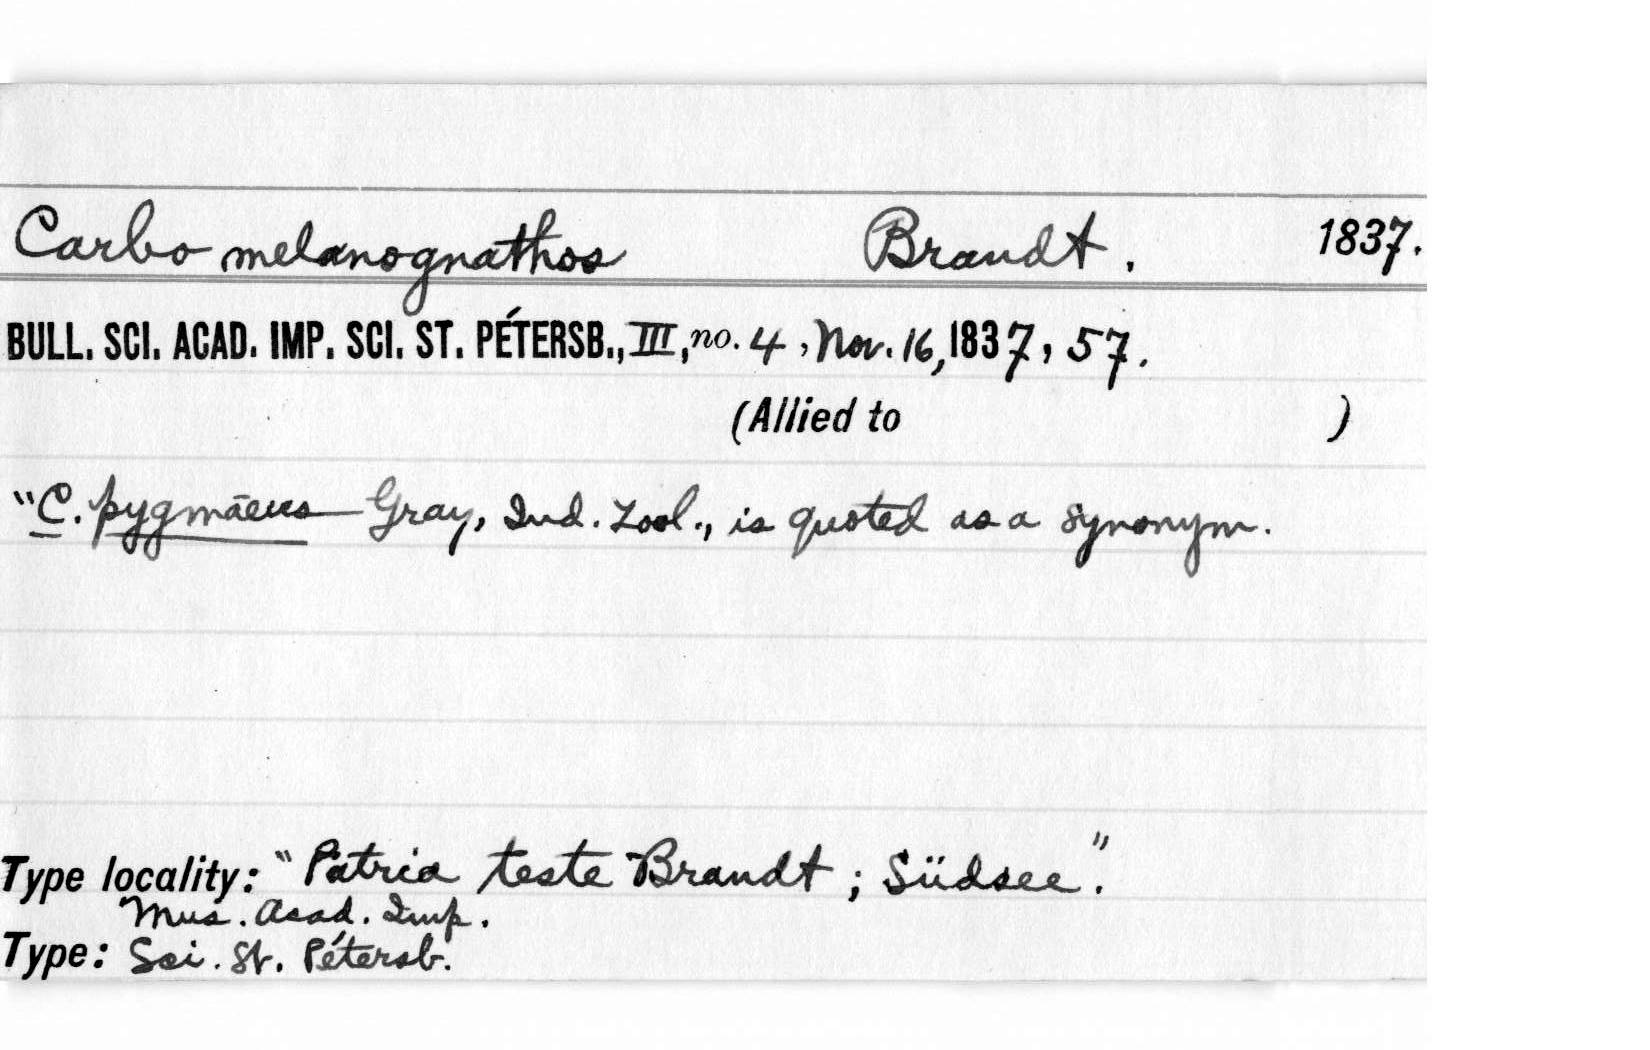 Carbo melanognathos Brandt. 1837.
BULL. SCI. ACAD. IMP. SCI. ST. PÉTERSB., III, no. 4, Nov. 16, 1837, 57.
(Allied to )
"C. pygmāeus Gray, Ind. Zool., is quoted as a synonym.
Type locality: "Patria teste Brandt; Südsee."
Mus. Acad. Imp.
Type: Sci. St. Pétersb.